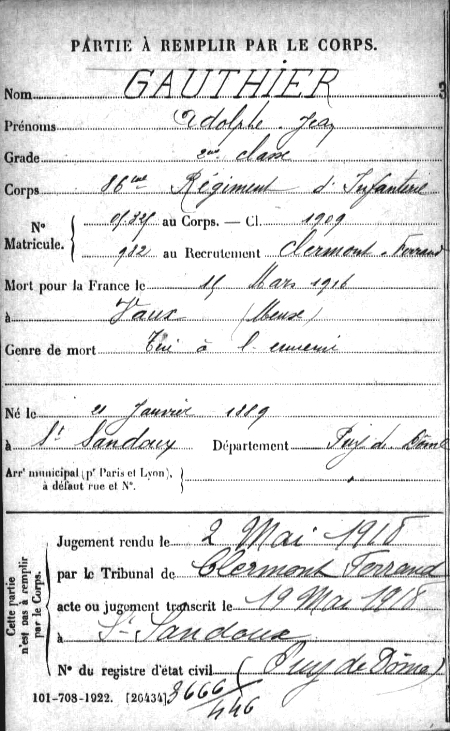 PARTIE À REMPLIR PAR LE CORPS.
Nom GAUTHIER
Prénoms Adolphe Jean
Grade 2me classe
Corps 86me Régiment d'Infanterie
N° Matricule. { au Corps. — Cl. 1909
982 au Recrutement Clermont-Ferrand
Mort pour la France le 15 Mars 1916
à Vaux (Meuse)
Genre de mort Tué à l'ennemi
Né le 21 Janvier 1889
à St Sandoux Département Puy de Dôme
Arrt municipal (pr Paris et Lyon), à défaut rue et N°. }
Cette partie n'est pas à remplir par le Corps.
Jugement rendu le 2 Mai 1918
par le Tribunal de Clermont Ferrand
acte ou jugement transcrit le 19 Mai 1918
à St-Sandoux
N° du registre d'état civil (Puy de Dôme)
101-708-1922. [26434] 3666/446